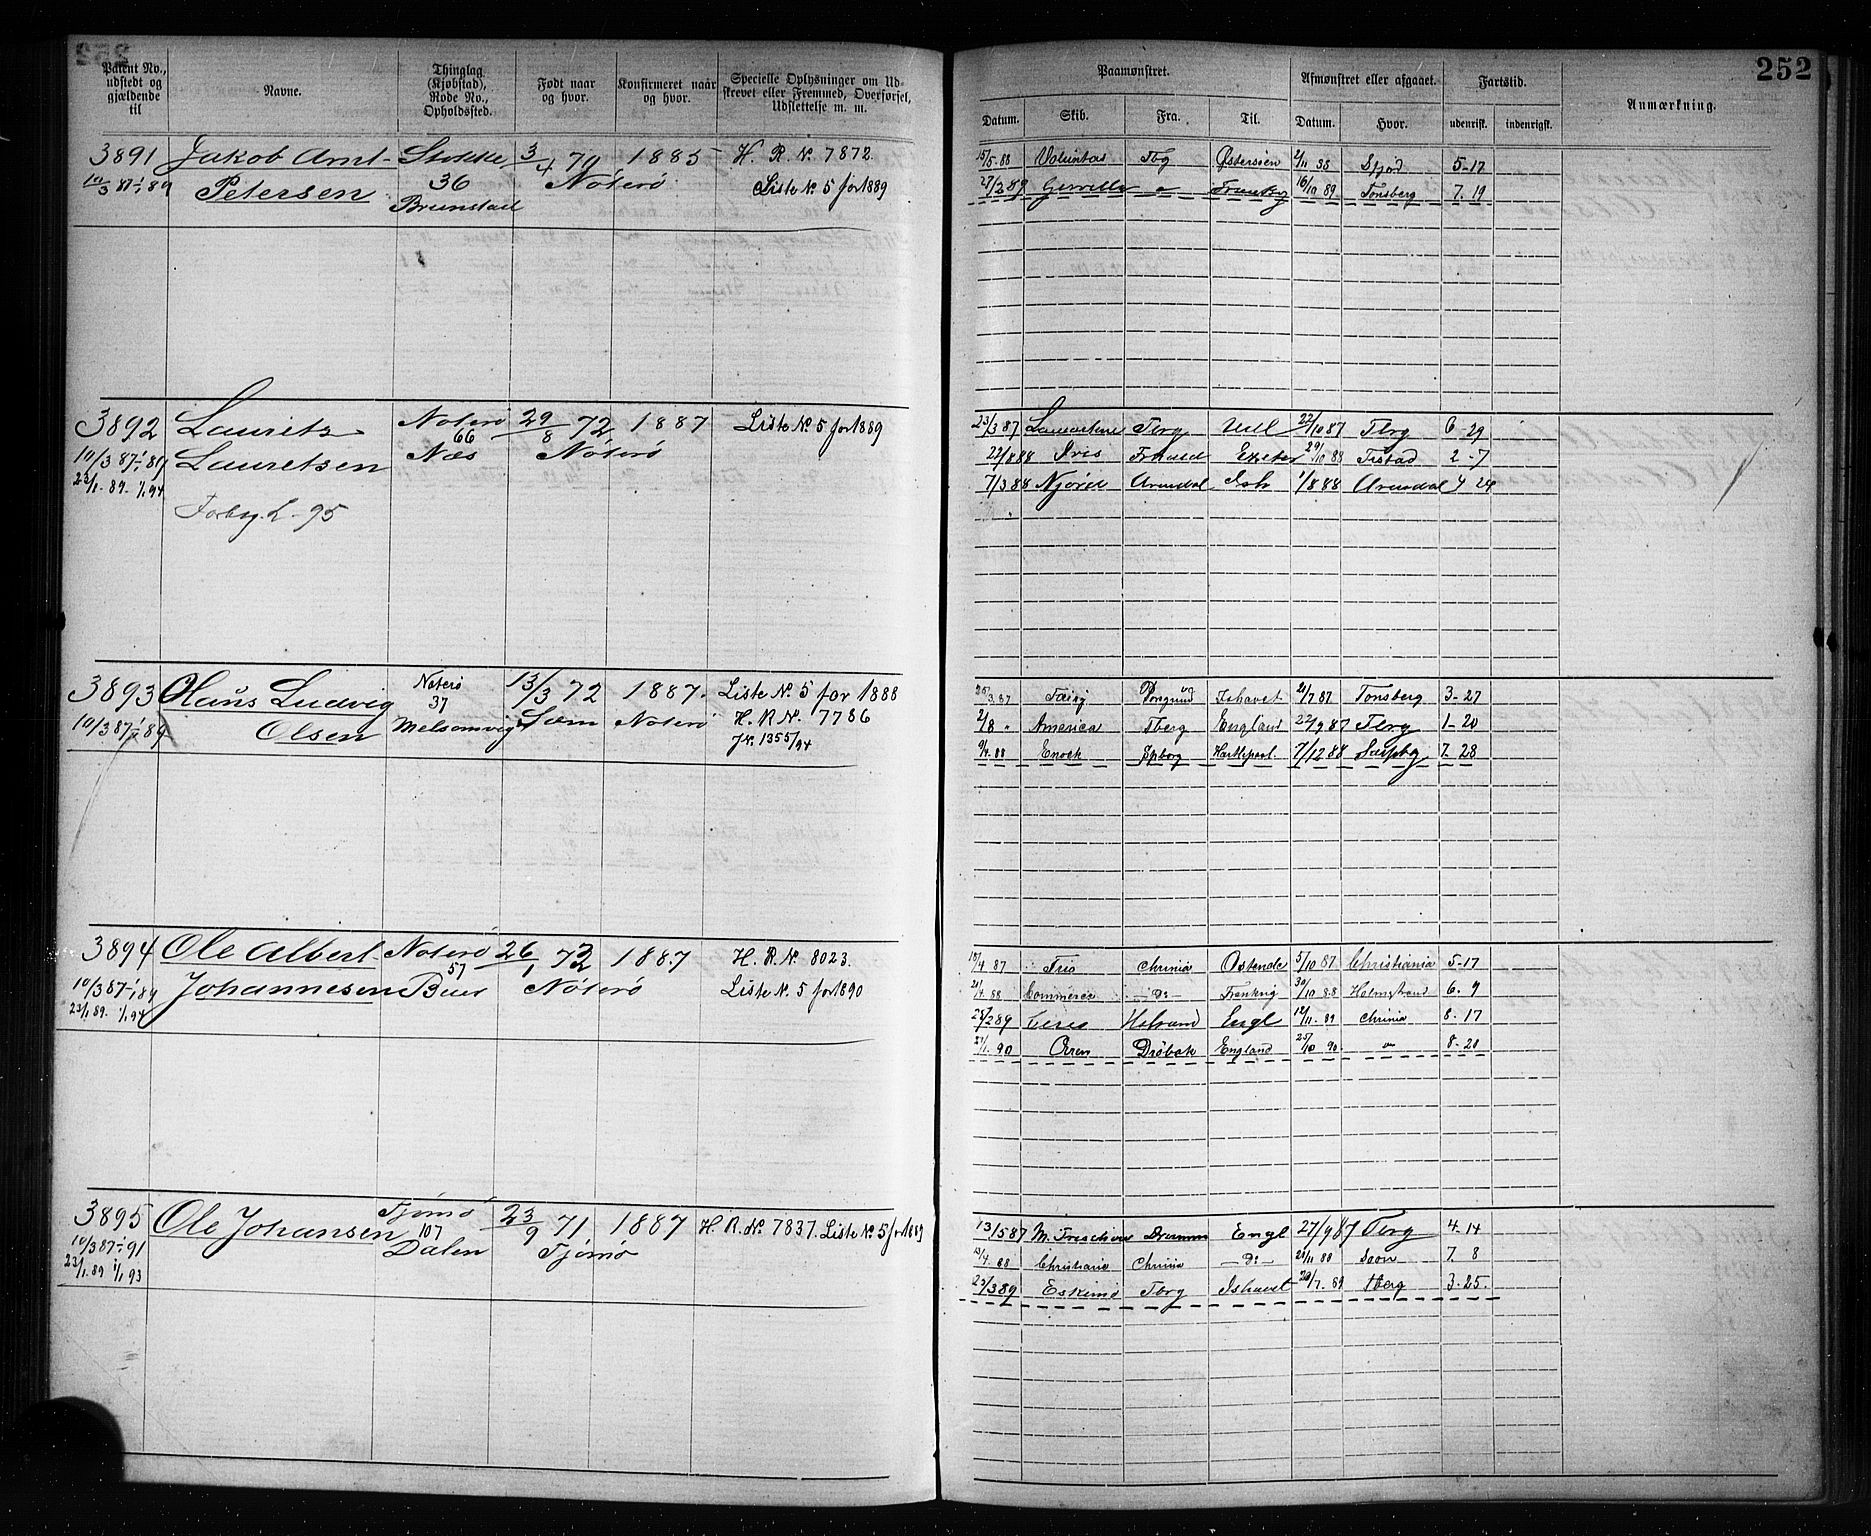 252
Patent No., udstedt og gjældende til
Navne.
Thinglag (Kjøbstad), Rode No., Opholdssted.
Født naar og hvor.
Konfirmeret naar og hvor.
Specielle Oplysninger om Udskrevet eller Fremmed, Overførsel, Udslettelse m. m.
Paamønstret.
Afmønstret eller afgaaet.
Fartstid.
Anmærkning.
Datum. Skib. Fra. Til. Datum. Hvor. udenrigsk. indenrigsk.
3891 Jakob Amt- Stokke 3/4 70 1885 H. R. N. 7872.
10/3 87 1/1 89 Petersen 36 Nøterø Liste N. 5 for 1889
Brunstad
15/5 88 Voluntas Tbg Østersøen 2/11 88 5-17
27/2 89 16/10 89 Tønsberg 7. 19
3892 Lauritz Nøterø 29/8 72 1887 Liste N. 5 for 1889
10/3 87 1/1 89 Lauretsen 66 Næs Nøterø
23/1 89. 1/1 94
L - 95
23/3 87 Tbrg Hull 22/10 87 Tbrg 6-29
22/8 88 Iris Exeter 29/10 88 Tistad 2-7
7/3 88 Njörd Arendal Ish 1/8 88 Arendal 4 24
3893 Hans Ludvig Nøterø 13/3 72 1887. Liste N. 5 for 1888
10/3 87 1/1 89 Olsen 37 Melsomvig Sæm Nøterø H. R. N. 7786
J N. 1355/94
Porsgrund Ishavet 21/7 87 Tønsberg 3-27
2/8 " America Tberg England 22/9 87 Tbrg 1-20
9/4 88 Enock Spborg Hartlepool 7/12 88 Sarpbg 7. 28
3894 Ole Albert- Nøterø 26/1 72 1887 H. R. N. 8023.
10/3 87 1/1 89 Johannesen 57 Buer Nøterø Liste N. 5 for 1890
23/1 89. 1/1 94
18/4 87 Iris Chrinia Ostende 5/10 87 Christiania 5-17
21/4 88 Commerce - Do - Frankrig 30/10 88 Holmstrand 6. 9
25/2 89 Ceres Holsrand Engl 12/11. 89 Chrinia 8-17
27/1. 90 Orren Drøbak England 25/10 90. " 8-20
3895 Ole Johansen Tjømø 23/9 71 1887 H. R. No. 7837. Liste N. 5 for 1889
10/3 87 1/1 91 107 Dalen Tjømø
23/1. 89 1/1 93
13/5 87 Dramm Engl 27/9 87 Tbrg 4. 14
13/4 88 Christiane Chrinia - Do - 20/11 88 7. 8
23/3 89 Eskimo Tbrg Ishavet 28/7. 89 Tberg 3-25.